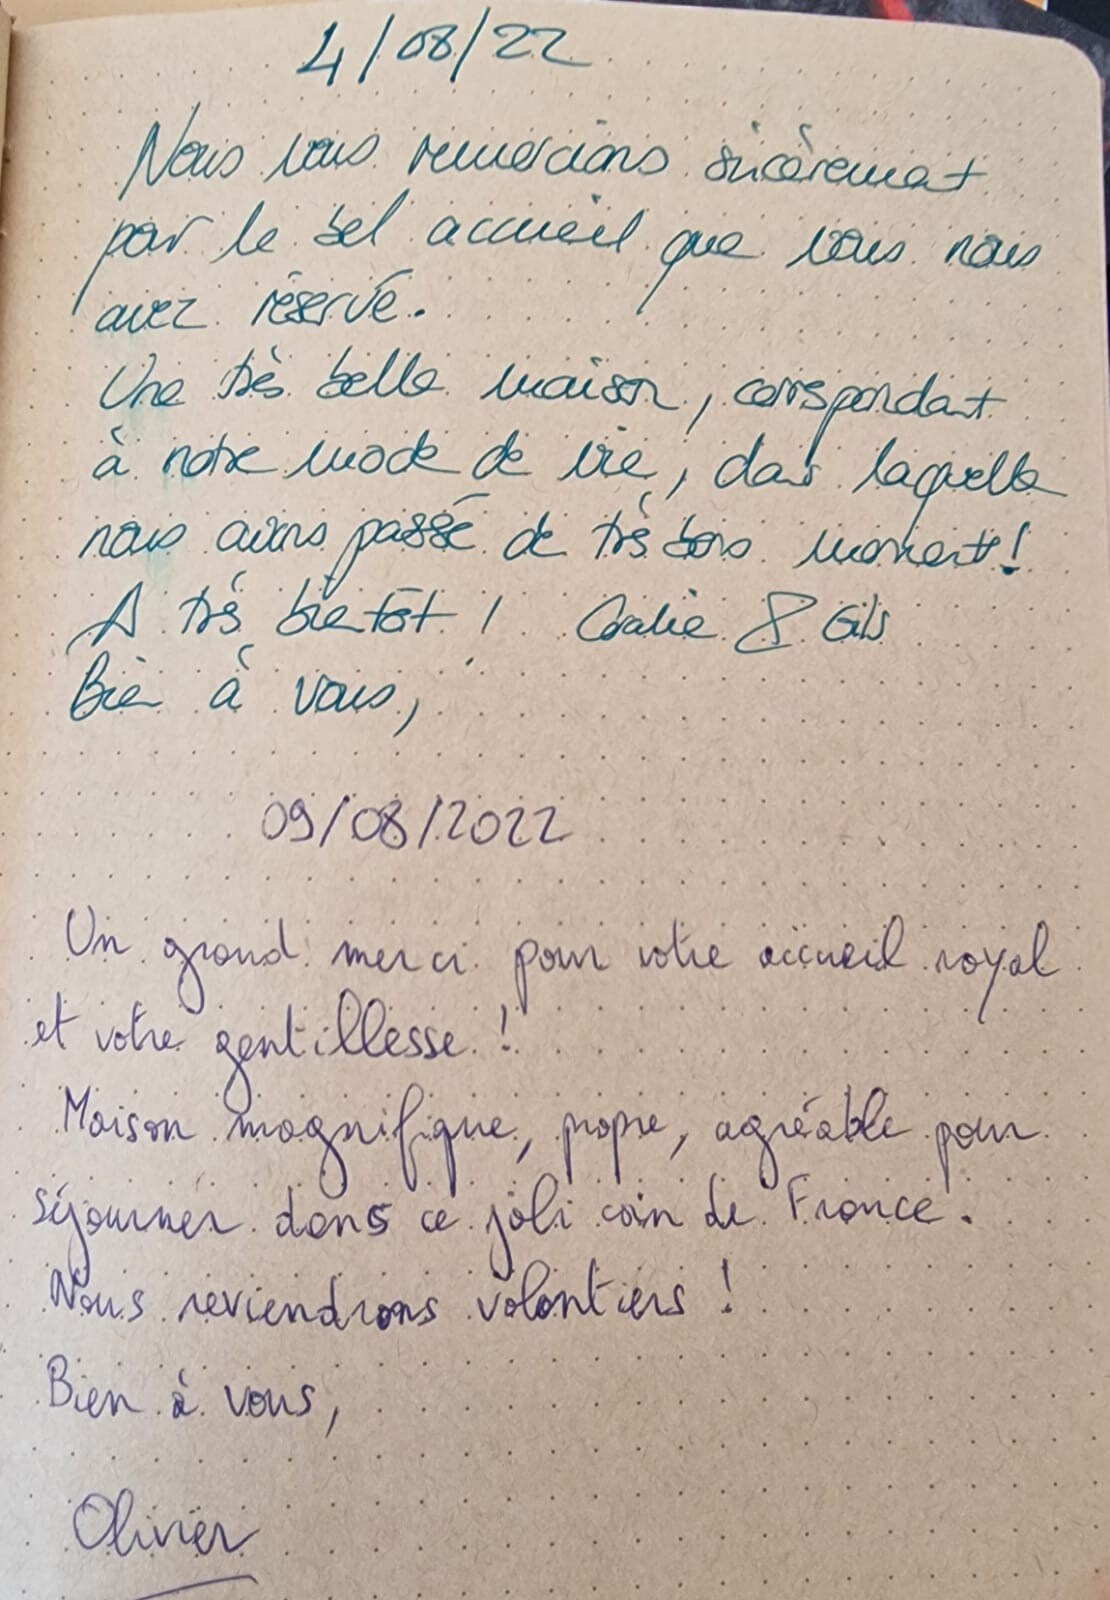 4/08/22
Nous vous remercions sincèrement
pour le bel accueil que vous nous
avez réservé.
Une très belle maison, correspondant
à notre mode de vie, dans laquelle
nous avons passé de très bons moments!
A très bientôt ! Coralie & Gils
Bien à vous,
09/08/2022
Un grand merci pour votre accueil royal
et votre gentillesse !
Maison magnifique, propre, agréable pour
séjourner dans ce joli coin de France.
Nous reviendrons volontiers !
Bien à vous,
Olivier